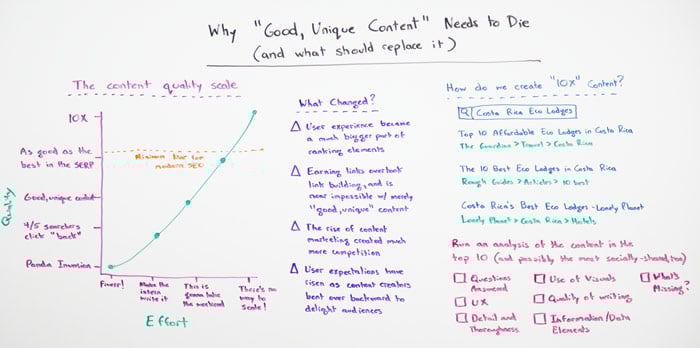 Why "Good, Unique Content" Needs to Die
(and what should replace it)
The content quality scale
10X
As good as the
best in the SERP
Minimum bar for
modern SEO
Good, unique content
4/5 searchers
click "back"
Panda Invasion
Quality
Fiverr!
Make the
intern
write it
This is
gonna take
the weekend
There's no
way to
scale!
Effort
What Changed?
User experience became
a much bigger part of
ranking elements
Earning links overtook
link building, and is
near impossible w/ merely
"good, unique" content
The rise of content
marketing created much
more competition
User expectations have
risen as content creators
bent over backward to
delight audiences
How do we create "10x" Content?
Costa Rica Eco Lodges
Top 10 Affordable Eco Lodges in Costa Rica
The Guardian > Travel > Costa Rica
The 10 Best Eco Lodges in Costa Rica
Rough Guides > Articles > 10 best
Costa Rica's Best Eco Lodges - Lonely Planet
Lonely Planet > Costa Rica > Hotels
Run an analysis of the content in the
top 10 (and possibly the most socially-shared, too)
Questions
Answered
Use of Visuals
What's
Missing?
UX
Quality of writing
Detail and
Thoroughness
Information/Data
Elements